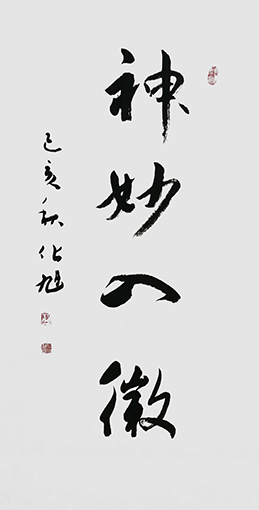 神妙入微
己亥秋旭